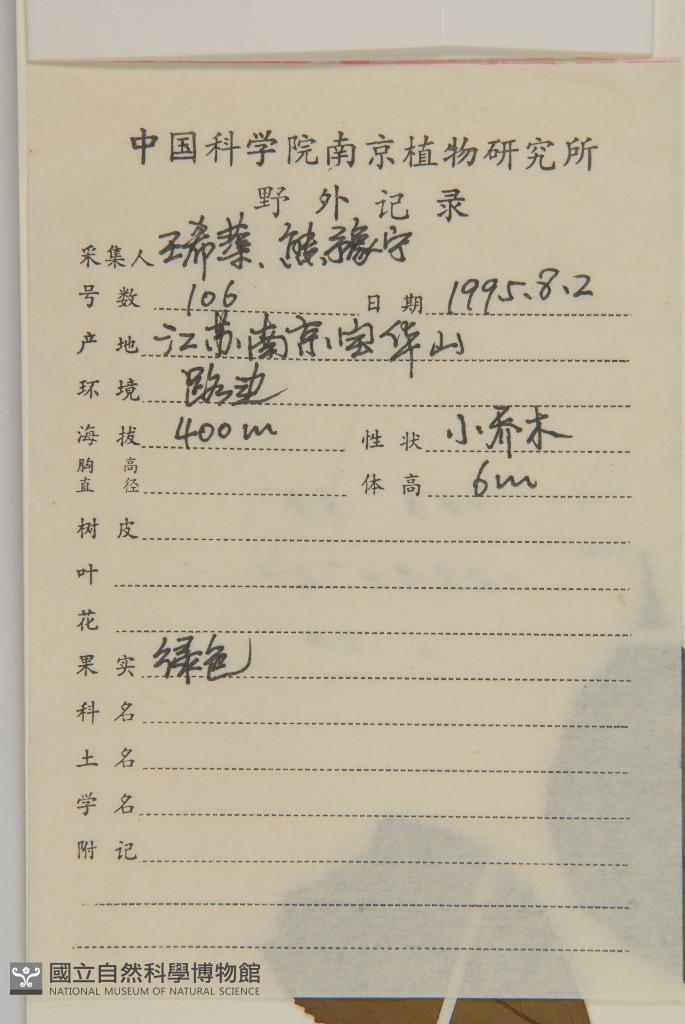 中国科学院南京植物研究所
野外记录
采集人 王希蕖、熊豫宁
号数 106 日期 1995.8.2
产地 江苏.南京.宝华山
环境 路边
海拔 400m 性状 小乔木
胸高直径 体高 6m
树皮
叶
花
果实 绿色
科名
土名
学名
附记
國立自然科學博物館
NATIONAL MUSEUM OF NATURAL SCIENCE